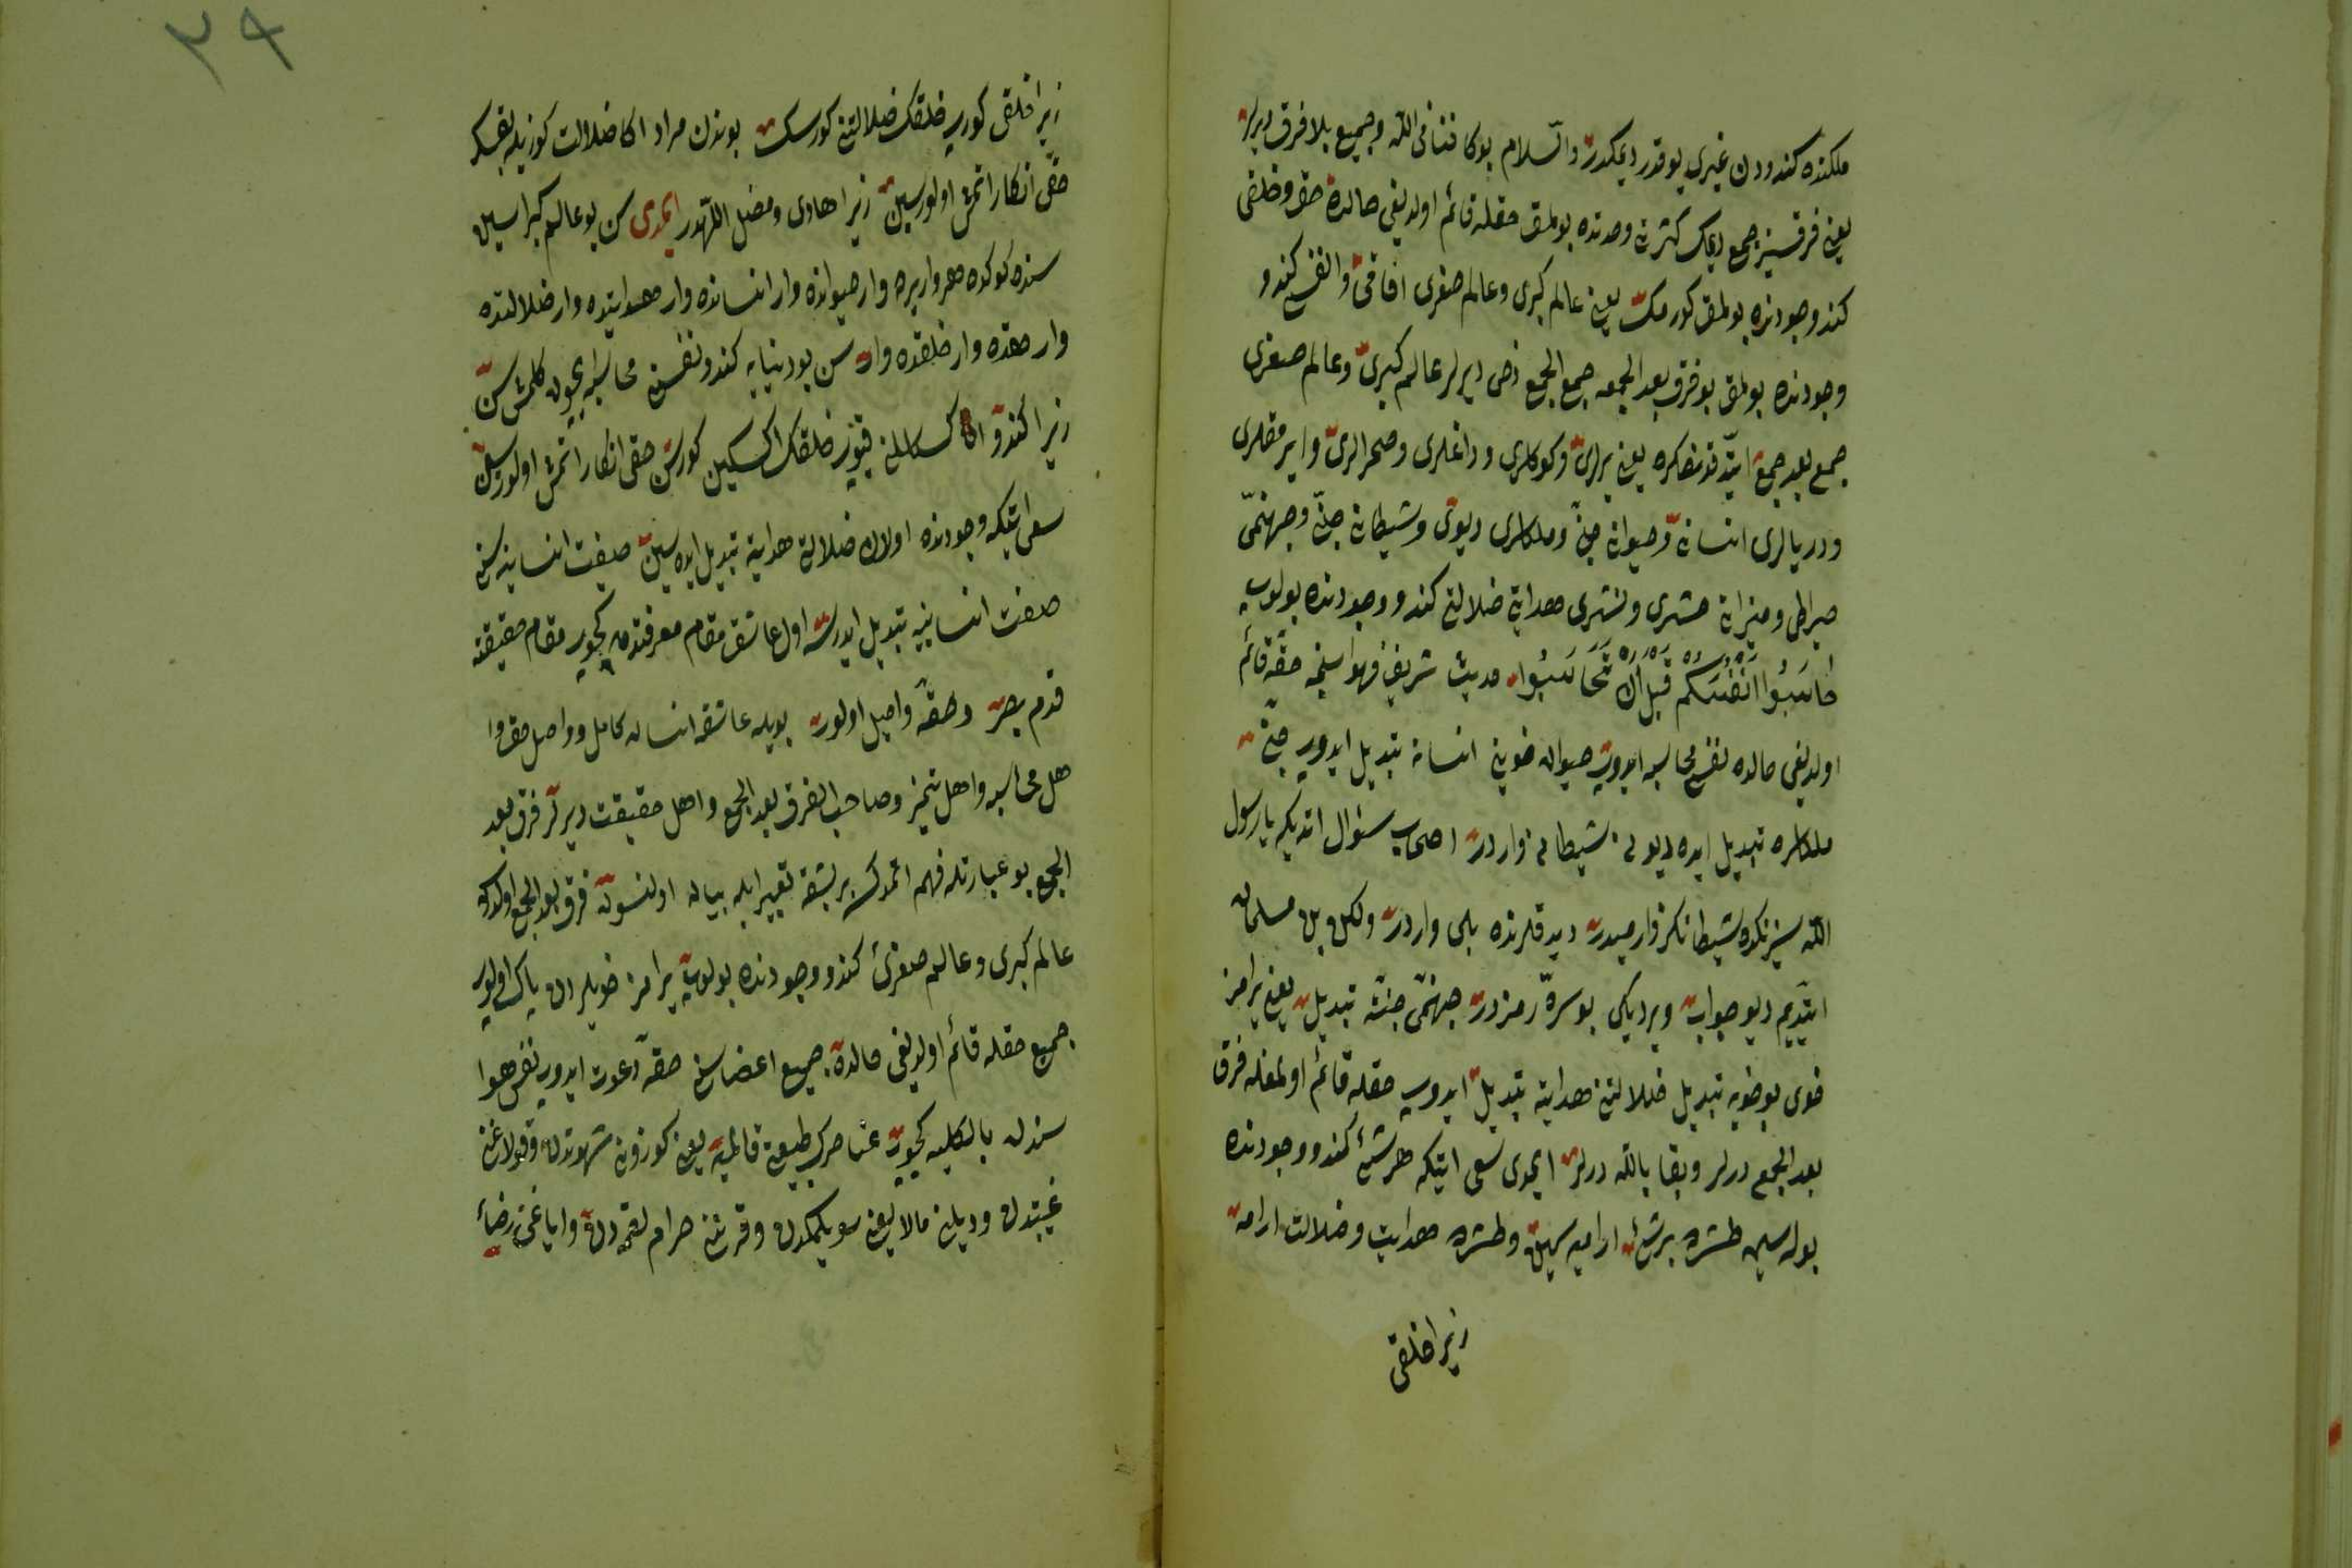 ملكنده كندودن غيرى يوقدر ديمكدر والسلام بوكا فنا فى الله وجميع بلا فرق ديرلر
يعنى فرقسز جمع ديمك كثرتى وحدتده بولمق حقله قائم اولديغى حالده حق وخلقى
كندو وجودنده بولمق كورمك يعنى عالم كبرى وعالم صغرى افاقى وانفسى كندو
وجودنده بولمق بو فرق بعد الجمعه جمع الجمع دخى ديرلر عالم كبرى وعالم صغرى
جمع بعد جمع ايتدكدنصكره يعنى يرلرى وكوكلرى وداغلرى وصحرالرى وايرمقلرى
ودريالرى انسانى وحيوانى جنى وملكلرى ديوى وشيطانى جنى وجهنمى
صراطى وميزانى حشرى ونشرى هدايتى ضلالتى كندو وجودنده بولوب
حَاسَبُوا اَنْفُسَكُم قَبْلَ اَنْ تُحَاسَبُوا حديث شريفى فهواسنجه حقه قائم
اولديغى حالده نفسى محاسبه ايدوب حيوان خوينى انسانه تبديل ايدوب جنى
ملكلره تبديل ايده ديونى شيطانى واردر اصحاب سئوال اتديكه يا رسول
الله سيزنكده شيطانكز وارميدر ديدكلرنده بلى واردر ولكن بن مسلمان
ايتديم ديو جواب ويرديكى بو سره رمزدر جهنمى جنته تبديل يعنى يرامز
خوى بو خويه تبديل ضلالتى هدايته تبديل ايدوب حقله قائم اولمغله فرق
بعد الجمع ديرلر وبقا بالله ديرلر ايمدى سعى ايتكه هر شئ كندو وجودنده
بوله سين طشره برشئ ارامیه سين وطشره هدايت وضلالت ارامه
زيرا خلقى
٢٩
زيرا خلقى كوروب خلقك ضلالتنى كورسك بوندن مراد اكا ضلالت كوزيله بقسك
حقى انكار اتمش اولورسين زيرا هادى ومضل اللهدر ايمدى سن بو عالم كبراسين
سنده كوكده هم وار يرده وار حيوانده وار انسانده وار هدايتده وار ضلالتده
وار حقده وار خلقده وار سن بو دنيايه كندو نفسنى محاسبه ايچون كلمش سن
زيرا كندو كمالن قيوب خلقك اكسكين كورسن حقى انكار اتمش اولورسين
سعى ايتكه وجودنده اولان ضلالتى هدايته تبديل ايده سين صفت انسانيه سنى
صفت انسانيه تبديل ايدرسه اول عاشق مقام معرفتدن كچوب مقام حقيقته
قدم بصر وحقه واصل اولور بويله عاشقه انسان كامل وواصل حق وا
هل محاسبه واهل تميز وصاحب الفرق بعد الجمع واهل حقيقت ديرلر فرق بعد
الجمع بو عبارتله فهم اتمدكسه بر بشقه تعبير ايله بيان اولنسون فرق بعد الجمع اولدركه
عالم كبرى وعالم صغرى كندو وجودنده بولوب يرامز خويلردن پاك اولوب
جميع حقله قائم اولديغى حالده جميع اعضاسنى حقه دعوت ايدوب نفس هوا
سندن بالكليه كچوب عناصر طبيعى قالميه يعنى كوزونى شهوتدن وقولاغنى
غيبتدن وديلنى مالا يعنى سويلمكدن وقرننى حرام لقمه دن واياغنى رضاء